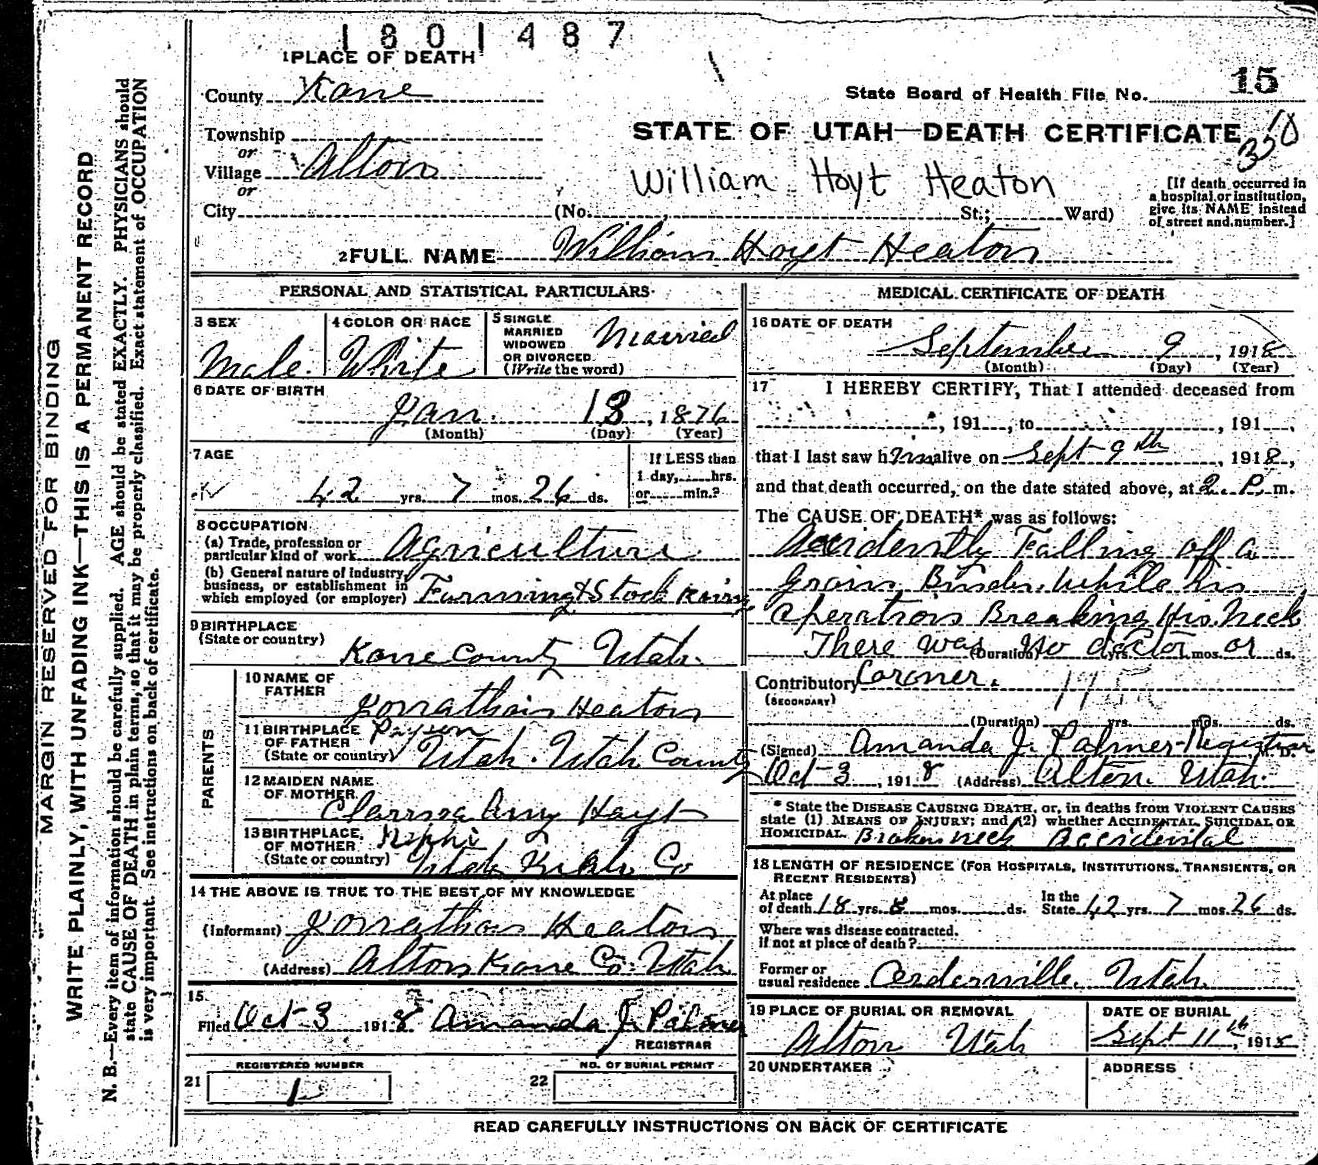 1801487
1 PLACE OF DEATH
County Kane
State Board of Health File No. 15
350
Township
or
Village Alton
or
City
STATE OF UTAH—DEATH CERTIFICATE
William Hoyt Heaton
(No. , St.; Ward)
[If death occurred in
a hospital or institution,
give its NAME instead
of street and number.]
2 FULL NAME William Hoyt Heaton
PERSONAL AND STATISTICAL PARTICULARS
3 SEX
Male
4 COLOR OR RACE
White
5 SINGLE
MARRIED
WIDOWED
OR DIVORCED
(Write the word)
Married
6 DATE OF BIRTH
Jan. 13, 1876
(Month) (Day) (Year)
7 AGE
42 yrs. 7 mos. 26 ds.
If LESS than
1 day, hrs.
or min.?
8 OCCUPATION
(a) Trade, profession or
particular kind of work Agriculture
(b) General nature of industry,
business, or establishment in
which employed (or employer) Farming & Stock
9 BIRTHPLACE
(State or country)
Kane County Utah.
PARENTS
10 NAME OF
FATHER
Jonathan Heaton
11 BIRTHPLACE
OF FATHER
(State or country)
Payson
Utah. Utah County
12 MAIDEN NAME
OF MOTHER
Clarissa Amy Hoyt
13 BIRTHPLACE
OF MOTHER
(State or country)
Nephi
Utah Co
14 THE ABOVE IS TRUE TO THE BEST OF MY KNOWLEDGE
(Informant) Jonathan Heaton
(Address) Alton Kane Co. Utah
15
Filed Oct-3 1918 Amanda J. Palmer
REGISTRAR
21 REGISTERED NUMBER
1
22 NO. OF BURIAL PERMIT
MEDICAL CERTIFICATE OF DEATH
16 DATE OF DEATH
September 9, 1918
(Month) (Day) (Year)
17 I HEREBY CERTIFY, That I attended deceased from
, 191 , to , 191 ,
that I last saw him alive on Sept 9th, 1918,
and that death occurred, on the date stated above, at 2 P. m.
The CAUSE OF DEATH* was as follows:
Accidently Falling off a
Grain Binder While his
operations Breaking His Neck
There was No doctor or
(Duration) yrs. mos. ds.
Contributory Coroner.
(SECONDARY)
(Duration) yrs. mos. ds.
(Signed) Amanda J. Palmer-Registrar
Oct-3, 1918 (Address) Alton. Utah.
* State the DISEASE CAUSING DEATH, or, in deaths from VIOLENT CAUSES
state (1) MEANS OF INJURY; and (2) whether ACCIDENTAL, SUICIDAL OR
HOMICIDAL. Broken neck Accidental
18 LENGTH OF RESIDENCE (FOR HOSPITALS, INSTITUTIONS, TRANSIENTS, OR
RECENT RESIDENTS)
At place
of death 18 yrs. 8 mos. ds.
In the
State 42 yrs. 7 mos. 26 ds.
Where was disease contracted.
if not at place of death?
Former or
usual residence Orderville, Utah
19 PLACE OF BURIAL OR REMOVAL
Alton Utah
DATE OF BURIAL
Sept 11th, 1918
20 UNDERTAKER
ADDRESS
READ CAREFULLY INSTRUCTIONS ON BACK OF CERTIFICATE
MARGIN RESERVED FOR BINDING
WRITE PLAINLY, WITH UNFADING INK—THIS IS A PERMANENT RECORD
N. B.—Every item of information should be carefully supplied. AGE should be stated EXACTLY. PHYSICIANS should
state CAUSE OF DEATH in plain terms, so that it may be properly classified. Exact statement of OCCUPATION
is very important. See instructions on back of certificate.